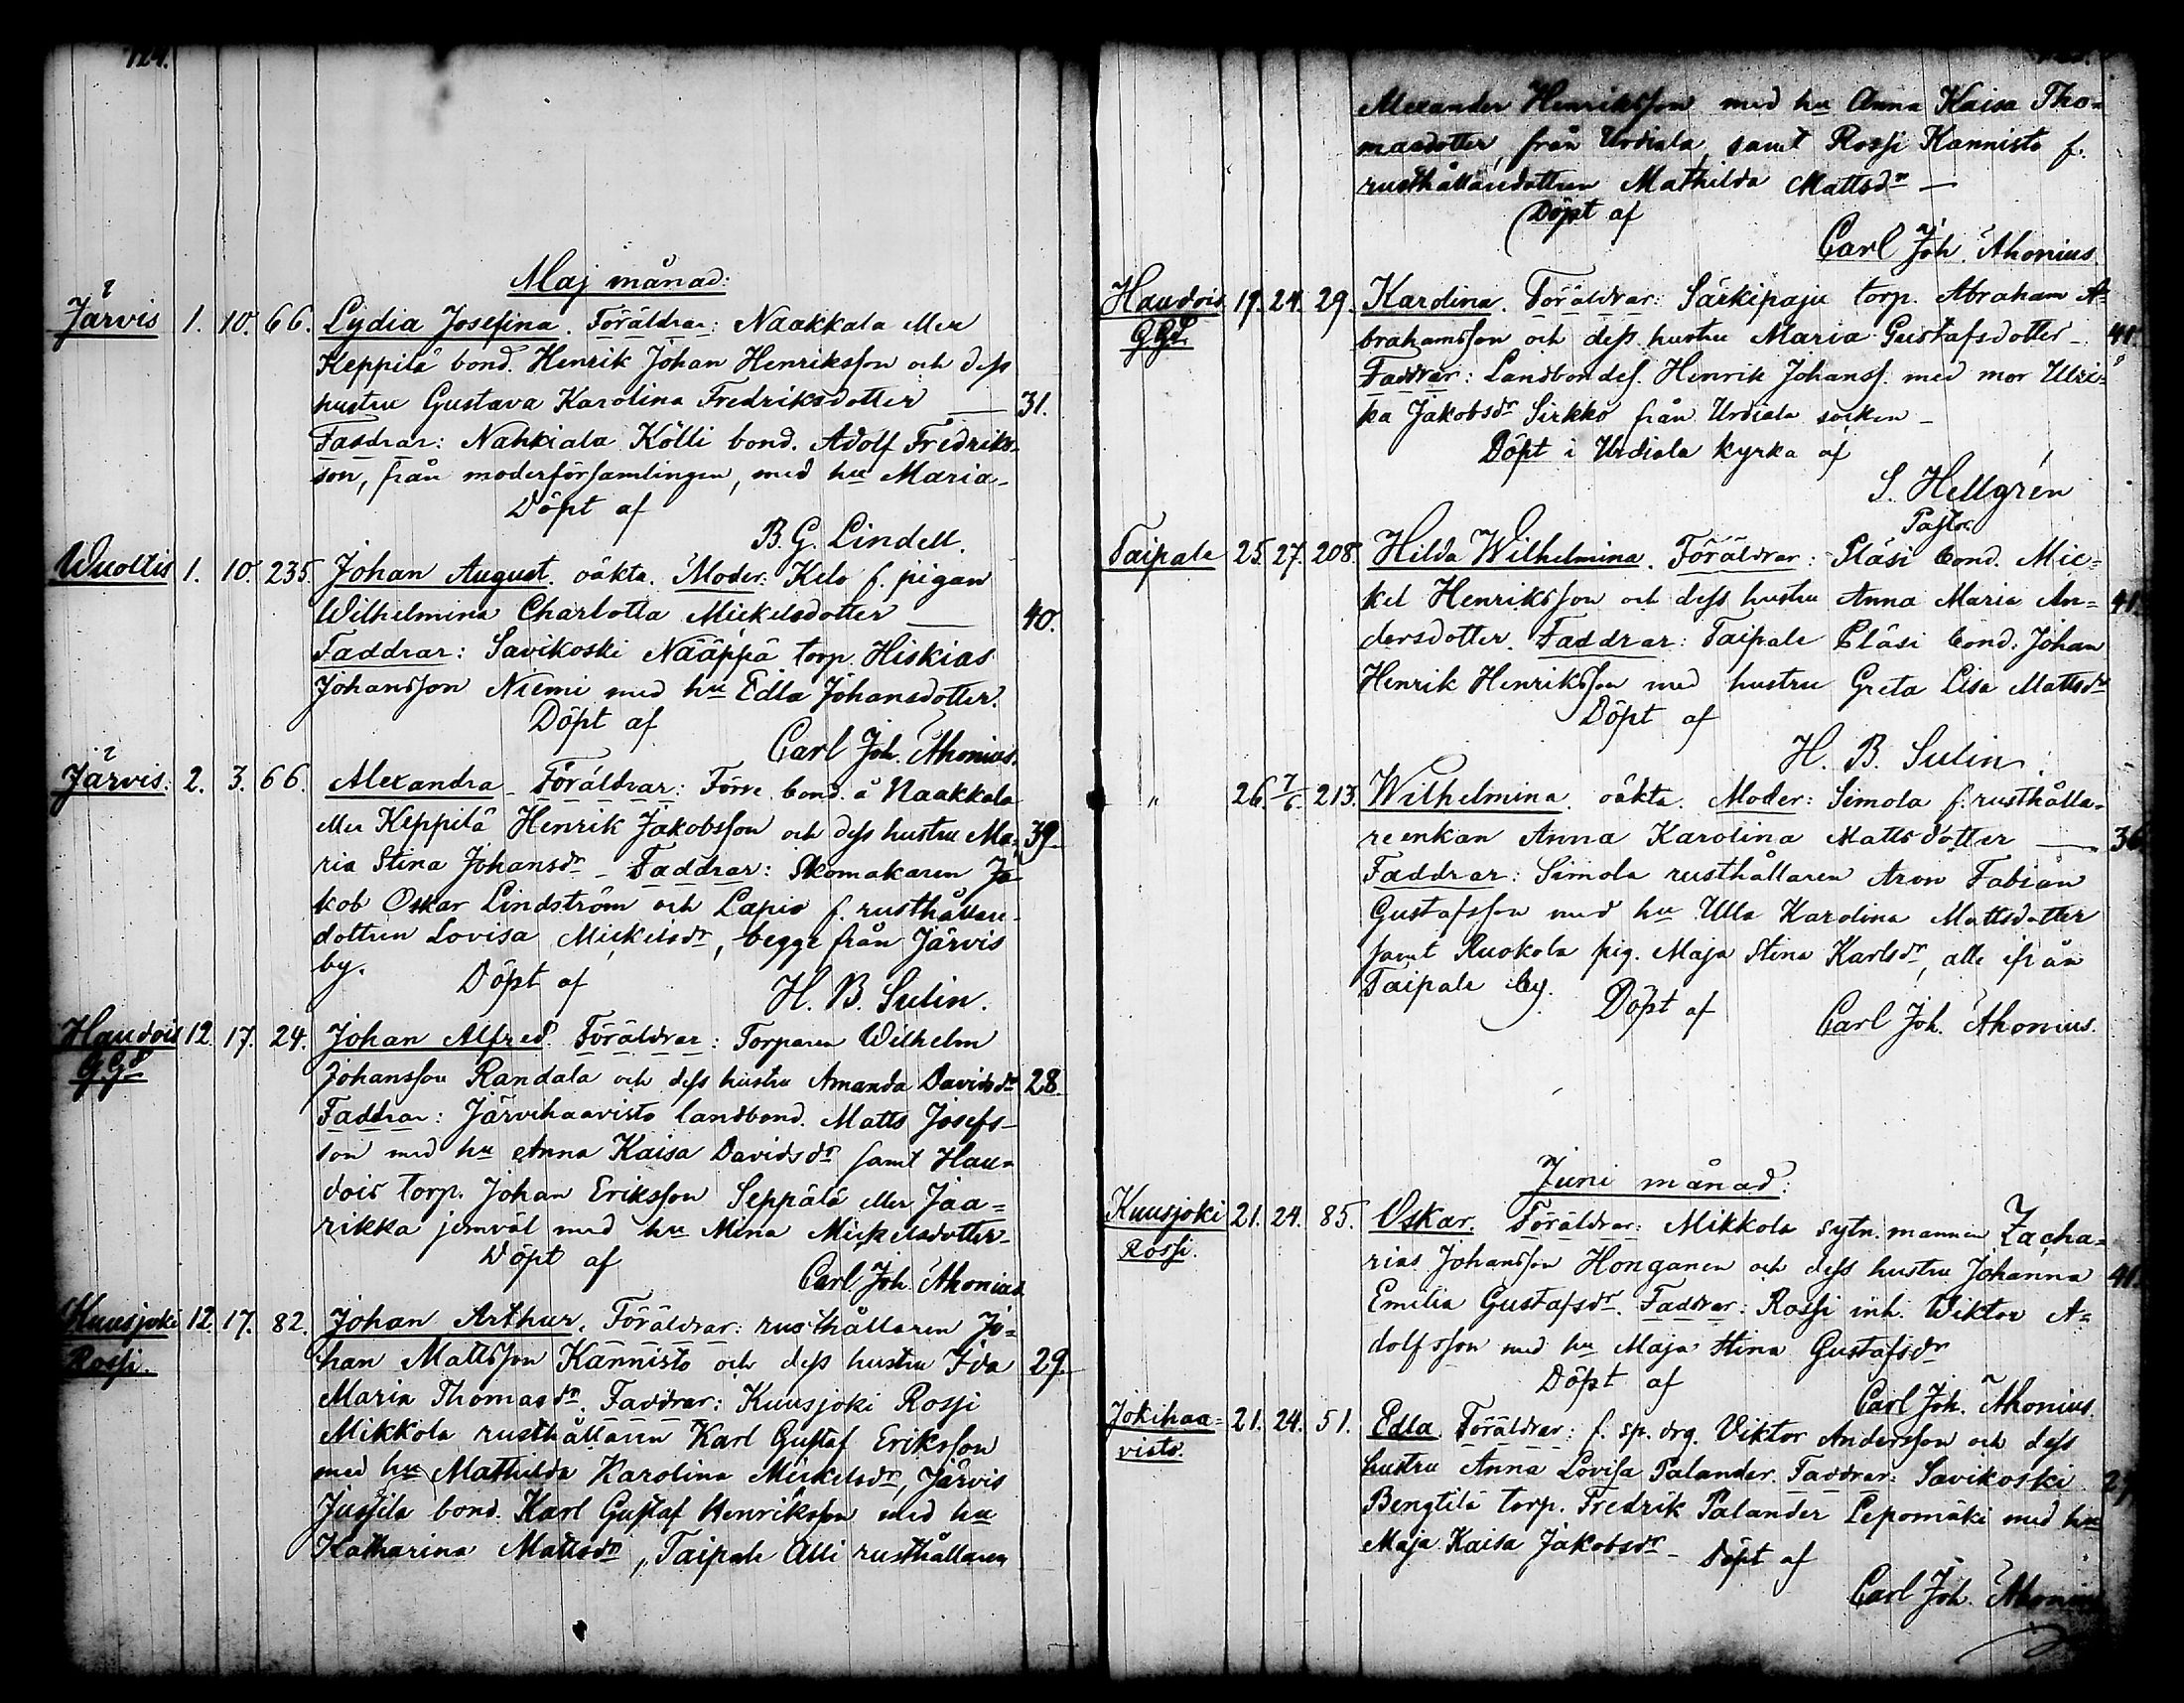 124.
Maj månad:
Järvis 1. 10. 66. Lydia Josefina. Föräldrar: Naakkala eller
Keppilä bond. Henrik Johan Henriksson och dess
hustru Gustava Karolina Fredriksdotter — 31.
Faddrar: Nahkiala Kölli bond. Adolf Fredriks-
son, från moderförsamlingen, med hu Maria-
Döpt af
B. G. Lindell.
Wuoltis 1. 10. 235. Johan August. oäkta. Moder: Kelo f. pigan
Wilhelmina Charlotta Mickelsdotter — 40.
Faddrar: Savikoski Nääppä torp. Hiskias
Johansson Niemi med hu Edla Johansdotter.
Döpt af
Carl Joh. Ahonius.
Järvis: 2. 3. 66. Alexandra - Föräldrar: Förre bond. å Naakkala
eller Keppilä Henrik Jakobsson och dess hustru Ma- 39.
ria Stina Johansdr - Faddrar: Skomakaren Ja-
kob Oskar Lindström och Lapio f. rusthållare-
dottren Lovisa Mickelsdr, begge från Järvis
by. Döpt af
H. B. Sulin.
Haudois 12. 17. 24. Johan Alfred. Föräldrar: Torparen Wilhelm
GGd
Johansson Randala och dess hustru Amanda Davidsdr 28.
Faddrar: Järvehaavisto landbond. Matts Josefs-
son med hu Anna Kaisa Davidsdr samt Hau-
dois torp. Johan Eriksson Seppälä eller Jaa=
rikka jemväl med hu Mina Mickelsdotter-
Döpt af
Carl Joh. Ahonius
Kuusjoki 12. 17. 82. Johan Arthur. Föräldrar: rusthållaren Jo=
Rossi.
han Mattsson Kannisto och dess hustru Ida 29.
Maria Thomasdr. Faddrar: Kuusjoki Rossi
Mikkola rusthållaren Karl Gustaf Eriksson
med hu Mathilda Karolina Mickelsdr, Järvis
Jussila bond. Karl Gustaf Henriksson med hu
Katharina Mattsdr, Taipale Alli rusthållaren
Alexander Henriksson med hu Anna Kaisa Tho-
masdotter, från Urdiala, samt Rossi Kannisto f.
rusthållaredottren Mathilda Mattsdr —
Döpt af
Carl Joh. Ahonius.
Haudois 19. 24. 29. Karolina. Föräldrar: Särkipaju torp. Abraham A=
GGd.
brahamsson och dess hustru Maria Gustafsdotter - 41
Faddrar: Landbondes. Henrik Johanss. med mor Ulri=
ka Jakobsdr Sirkko från Urdiala socken -
Döpt i Urdiala kyrka af
S. Hellgrén
Pastor
Taipale 25. 27. 208. Hilda Wilhelmina. Föräldrar: Pläsi bond. Mic=
kel Henriksson och dess hustru Anna Maria An= 41
dersdotter. Faddrar: Taipale Pläsi bond. Johan
Henrik Henriksson med hustru Greta Lisa Mattsdr
Döpt af
H. B. Sulin
" 26. 7/6. 213. Wilhelmina. oäkta. Moder: Simola f. rusthålla-
reenkan Anna Karolina Mattsdotter —
Faddrar: Simola rusthållaren Aron Fabian
Gustafsson med hu Ulla Karolina Mattsdotter
samt Ruokola pig. Maja Stina Karlsdr, alla ifrån
Taipale by. Döpt af
Carl Joh. Ahonius.
Juni månad:
Kuusjoki 21. 24. 85. Oskar. Föräldrar: Mikkola sytn. mannen Zacha=
Rossi.
rias Johansson Honganen och dess hustru Johanna 41
Emilia Gustafsdr. Faddrar: Rossi inh. Wiktor A=
dolfsson med hu Maja Stina Gustafsdr
Döpt af
Carl Joh. Ahonius.
Jokihaa= 21. 24. 51. Edla. Föräldrar: f. sp. drg. Viktor Andersson och dess
visto.
hustru Anna Lovisa Palander. Faddrar: Savikoski
Bengtilä torp. Fredrik Palander Lepomäki med hu
Maja Kaisa Jakobsdr - Döpt af
Carl Joh. Ahonius